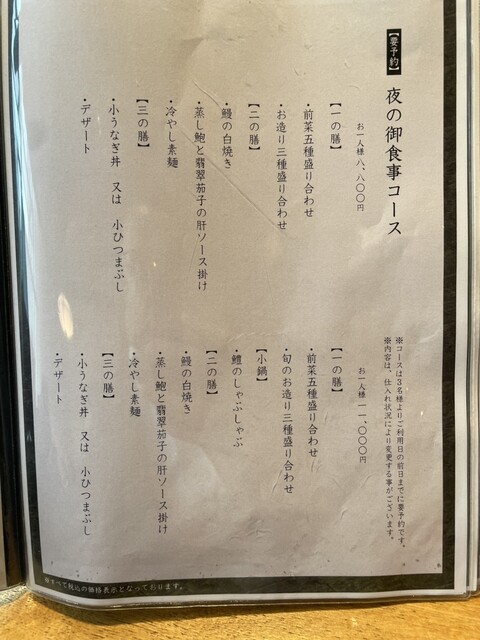 【要予約】 夜の御食事コース
※コースは3名様よりご利用日の前日までに要予約です。
※内容は、仕入れ状況により変更する事がございます。
お一人様 八、八〇〇円
【一の膳】
・前菜五種盛り合わせ
・お造り三種盛り合わせ
【二の膳】
・鰻の白焼き
・蒸し鮑と翡翠茄子の肝ソース掛け
・冷やし素麺
【三の膳】
・小うなぎ丼 又は 小ひつまぶし
・デザート
お一人様 一一、〇〇〇円
【一の膳】
・前菜五種盛り合わせ
・旬のお造り三種盛り合わせ
【小鍋】
・鱧のしゃぶしゃぶ
【二の膳】
・鰻の白焼き
・蒸し鮑と翡翠茄子の肝ソース掛け
・冷やし素麺
【三の膳】
・小うなぎ丼 又は 小ひつまぶし
・デザート
※すべて税込の価格表示となっております。